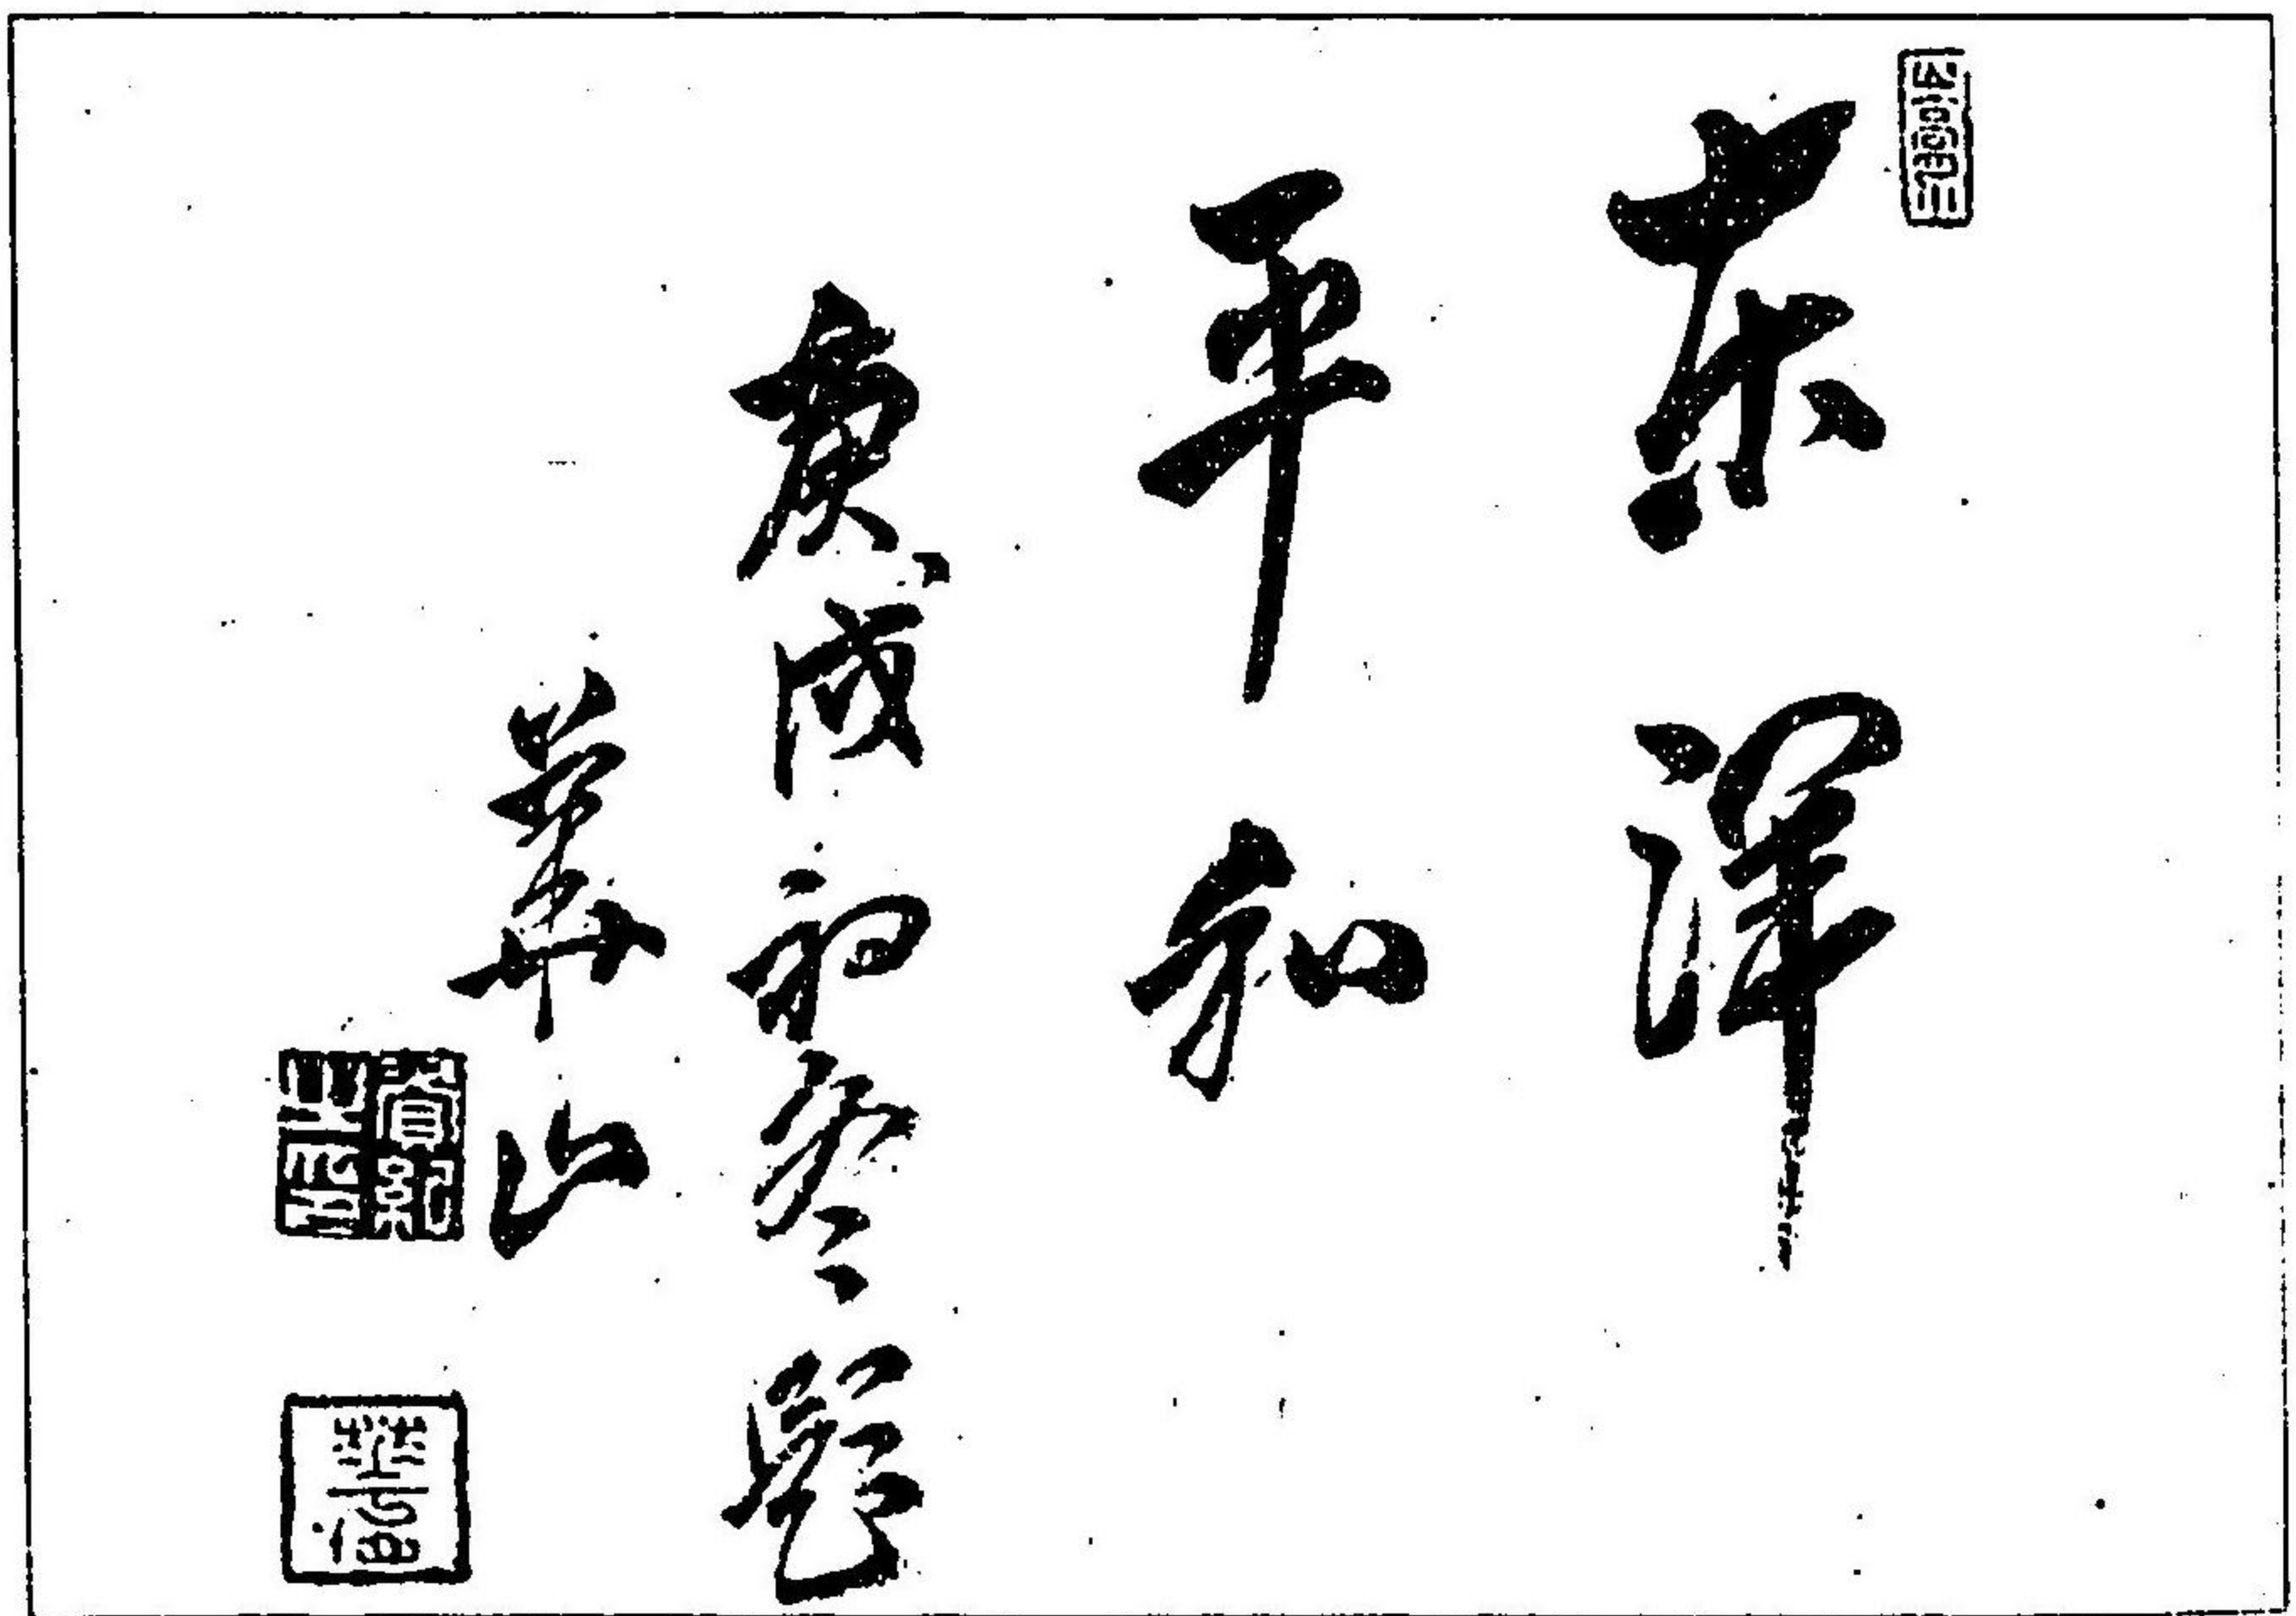 東洋
平和
庚戌初冬題
華山